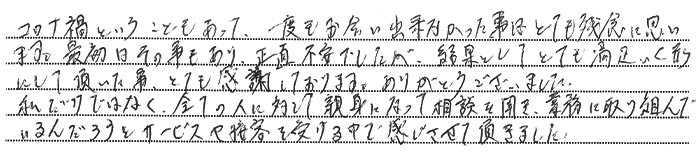 コロナ禍ということもあって、一度もお会い出来なかった事はとても残念に思い
ます。最初はその事もあり、正直不安でしたが、結果としてとても満足いく形
にして頂いた事とても感謝しております。ありがとうございました。
私だけではなく、全ての人に対して親身になって相談を聞き、業務に取り組んで
いるんだろうとサービスや接客を受ける中で感じさせて頂きました。